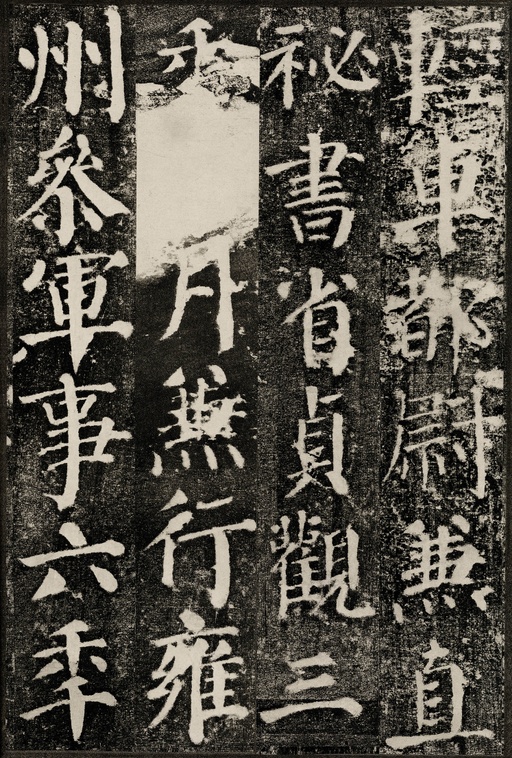 輕車都尉兼直
祕書省貞觀三
年月兼行雍
州參軍事六年